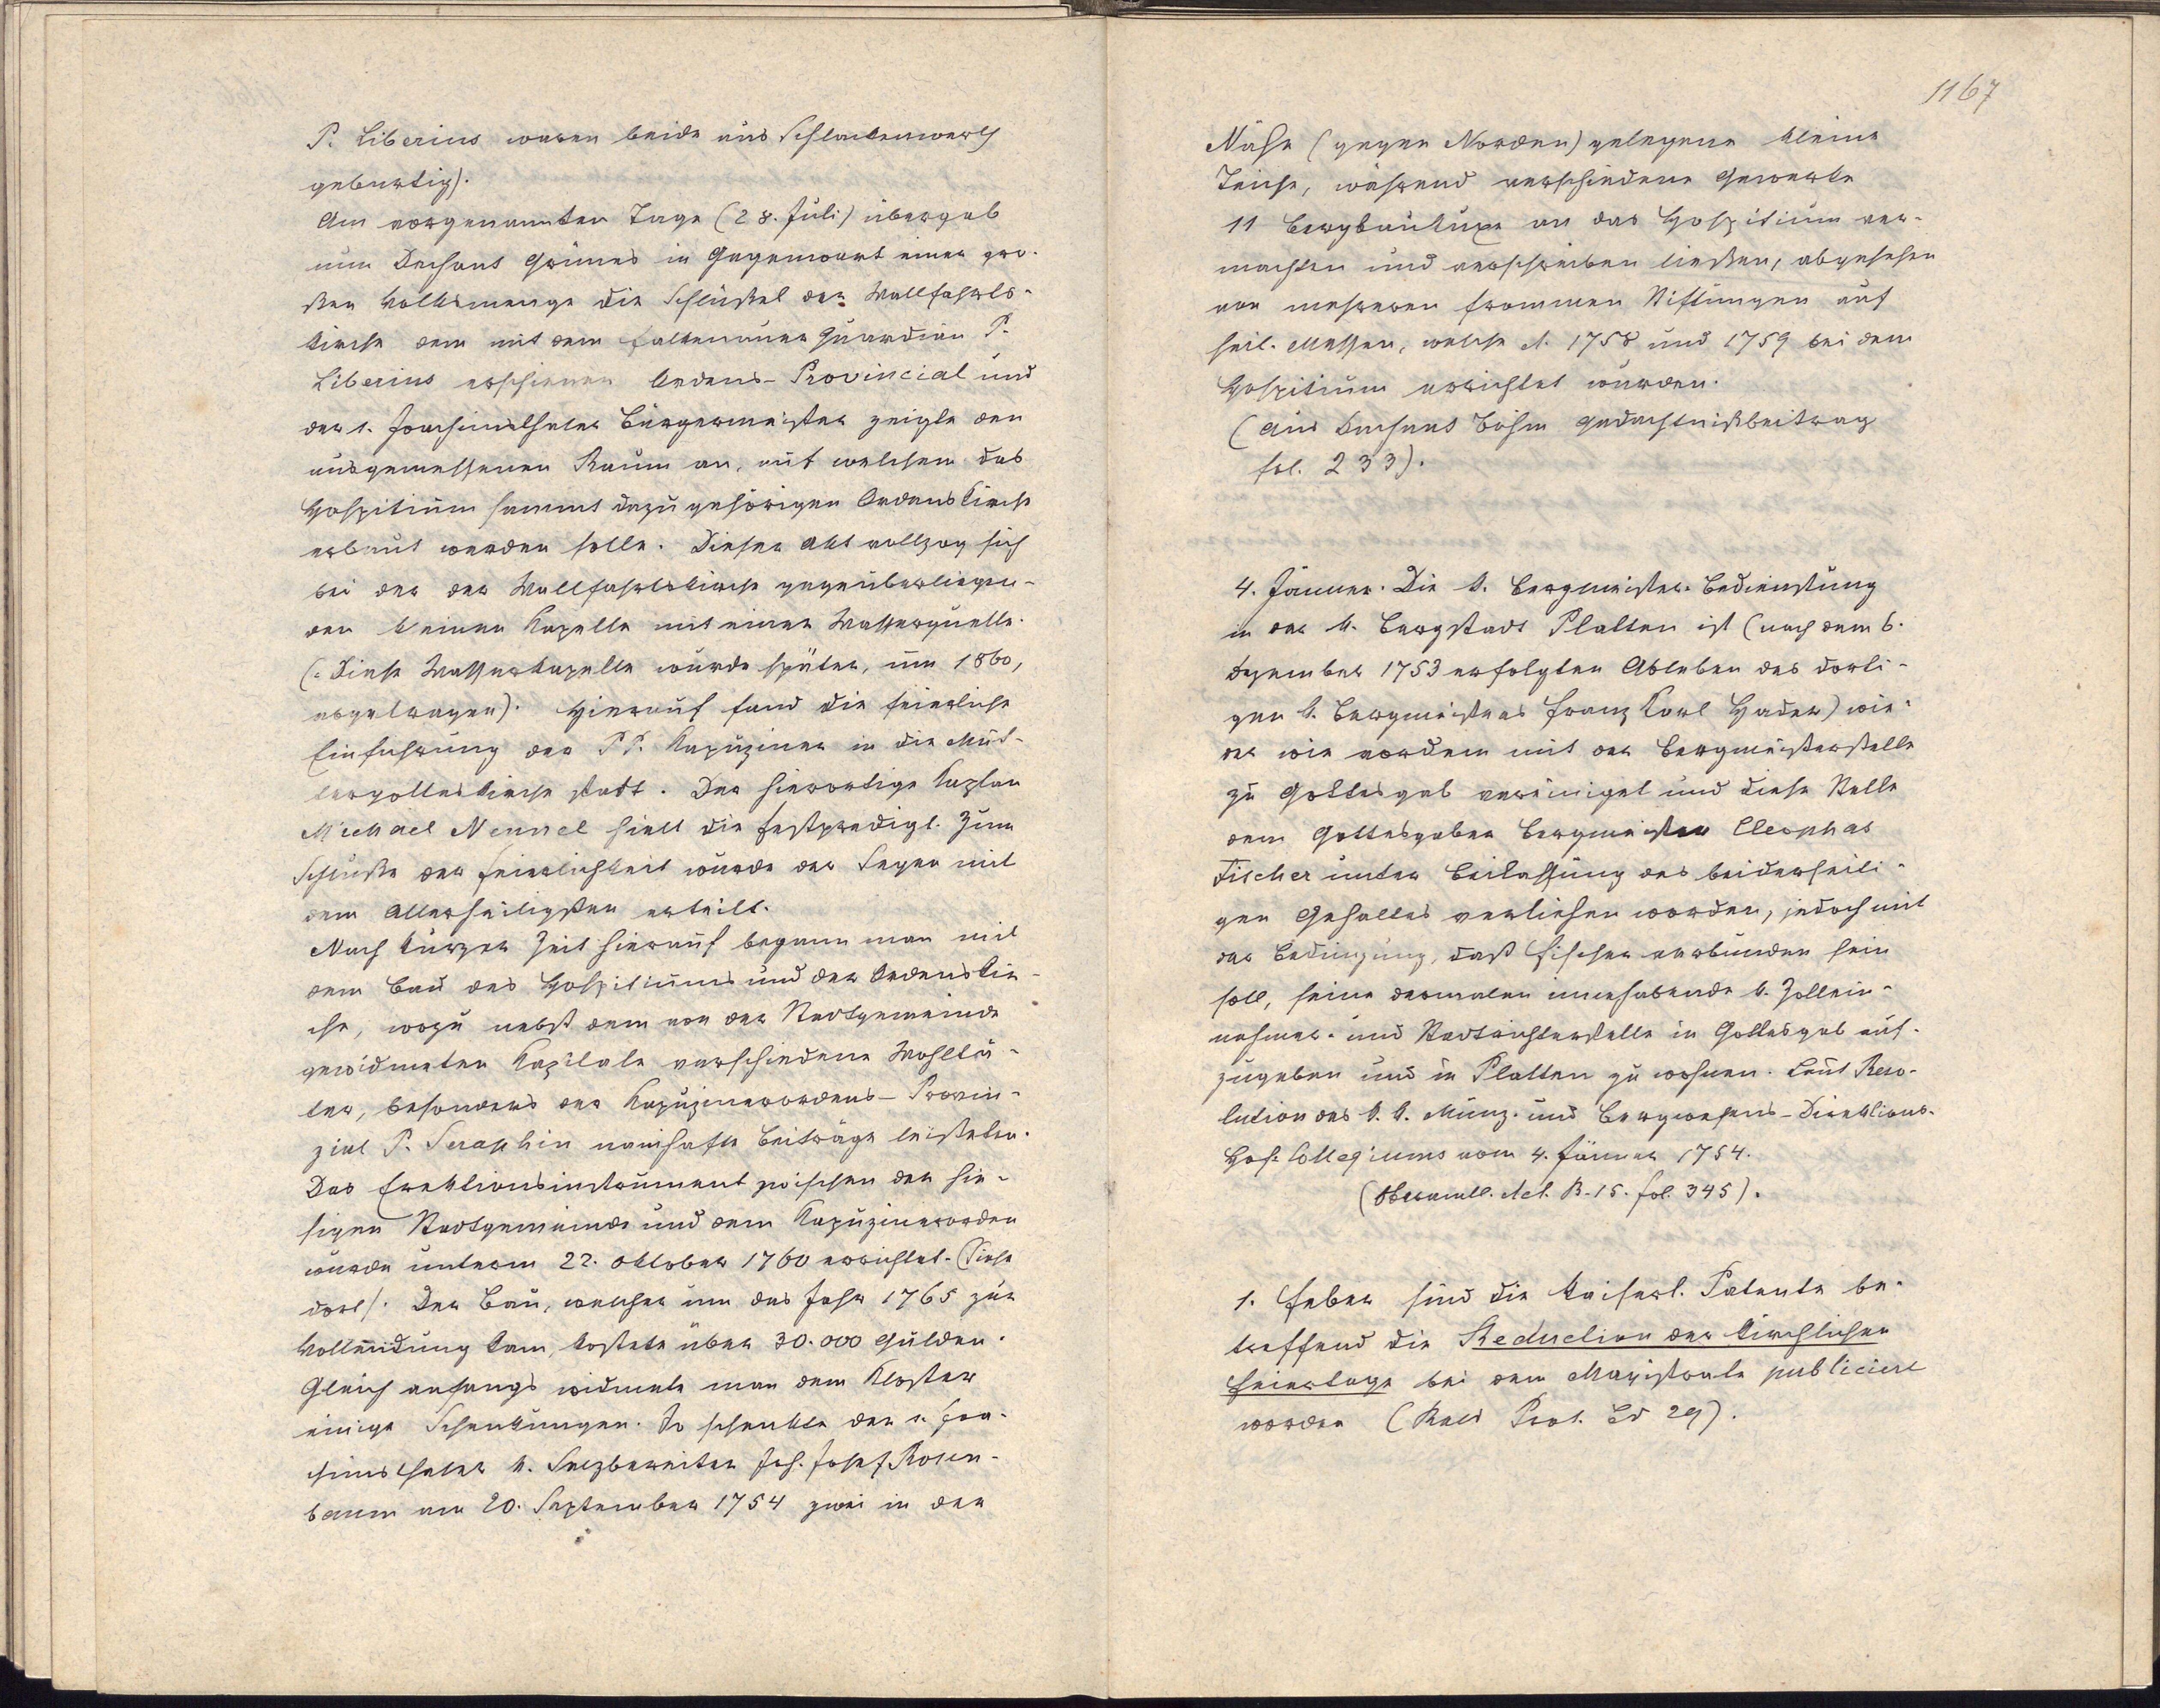 P. Liberius waren beide aus Schlackenwerth
gebürtig).
Am vorgenannten Tage (28. Juli) übergab
nun Dechant Grimes in Gegenwart einer gro-
ßen Volksmenge die Schlüßel der Wallfahrts-
kirche dem mit dem Falkenauer Guardian P.
Liberius erschienen Ordens-Provincial und
der s. Joachimsthaler Bürgermeister zeigte den
ausgemessenen Raum an, auf welchem das
Hospitium sammt dazu gehörigen Ordenskirche
erbaut werden solle. Dieser Akt vollzog sich
bei der der Wallfahrtskirche gegenüberliegen-
den kleinen Kapelle mit einer Wasserquelle.
(: Diese Wasserkapelle wurde später, um 1860,
abgetragen). Hierauf fand die feierliche
Einführung der P.P. Kapuziner in die Mut-
tergotteskirche statt. Der hierortige Kaplan
Michael Nennel hielt die Festpredigt. Zum
Schluße der Feierlichkeit wurde der Segen mit
dem Allerheiligsten erteilt.
Nach kurzer Zeit hierauf begann man mit
dem Bau des Hospitiums und der Ordenskir-
che, wozu nebst dem von der Stadtgemeinde
gewidmeten Kapitale verschiedene Wohltä-
ter, besonders der Kapuzinerordens-Provin-
zial P. Seraphin namhafte Beiträge leisteten.
Das Erektionsinstrument zwischen der hie-
sigen Stadtgemeinde und dem Kapuzinerorden
wurde unterm 22. Oktober 1760 errichtet. (Siehe
dort). Der Bau, welcher um das Jahr 1765 zur
Vollendung kam, kostete über 30.000 Gulden.
Gleich anfangs widmete man dem Kloster
einige Schenkungen. So schenkte der s. Joa-
chimsthaler k. Salzbereiter Joh. Josef Rosen-
baum am 20. September 1754 zwei in der
1167
Nähe (gegen Norden) gelegene kleine
Teiche, während verschiedene Gewerke
11 Bergbaukuxe an das Hospitium ver-
machten und verschreiben ließen, abgesehen
von mehreren frommen Stiftungen auf
heil. Messen, welche A. 1758 und 1759 bei dem
Hospitium errichtet wurden.
(Aus Dechant Böhm Gedächtnißbeitrag
fol. 233).
4. Jänner. Die k. Bergmeister-Bedienstung
in der k. Bergstadt Platten ist (nach dem 6.
Dezember 1753 erfolgten Ableben des dorti-
gen k. Bergmeisters Franz Karl Hader) wie-
der wie vordem mit der Bergmeisterstelle
zu Gottesgab vereiniget und diese Stelle
dem Gottesgaber Bergmeister Cleophas
Fischer unter Beilassung des beiderseiti-
gen Gehaltes verliehen worden, jedoch mit
der Bedingung, daß Fischer verbunden sein
soll, seine dermalen innehabende k. Zollein-
nehmer- und Stadtrichterstelle in Gottesgab auf-
zugeben und in Platten zu wohnen. Laut Reso-
lution des k. k. Münz- und Bergwesens-Direktions-
Hof-Collegiums vom 4. Jänner 1754.
(Oberamtl. Act. B. 15. fol. 345).
1. Feber sind die kaiserl. Patente be-
treffend die Reduction der kirchlichen
Feiertage bei dem Magistrate publiciert
worden (Rats Prot. Bd 29).